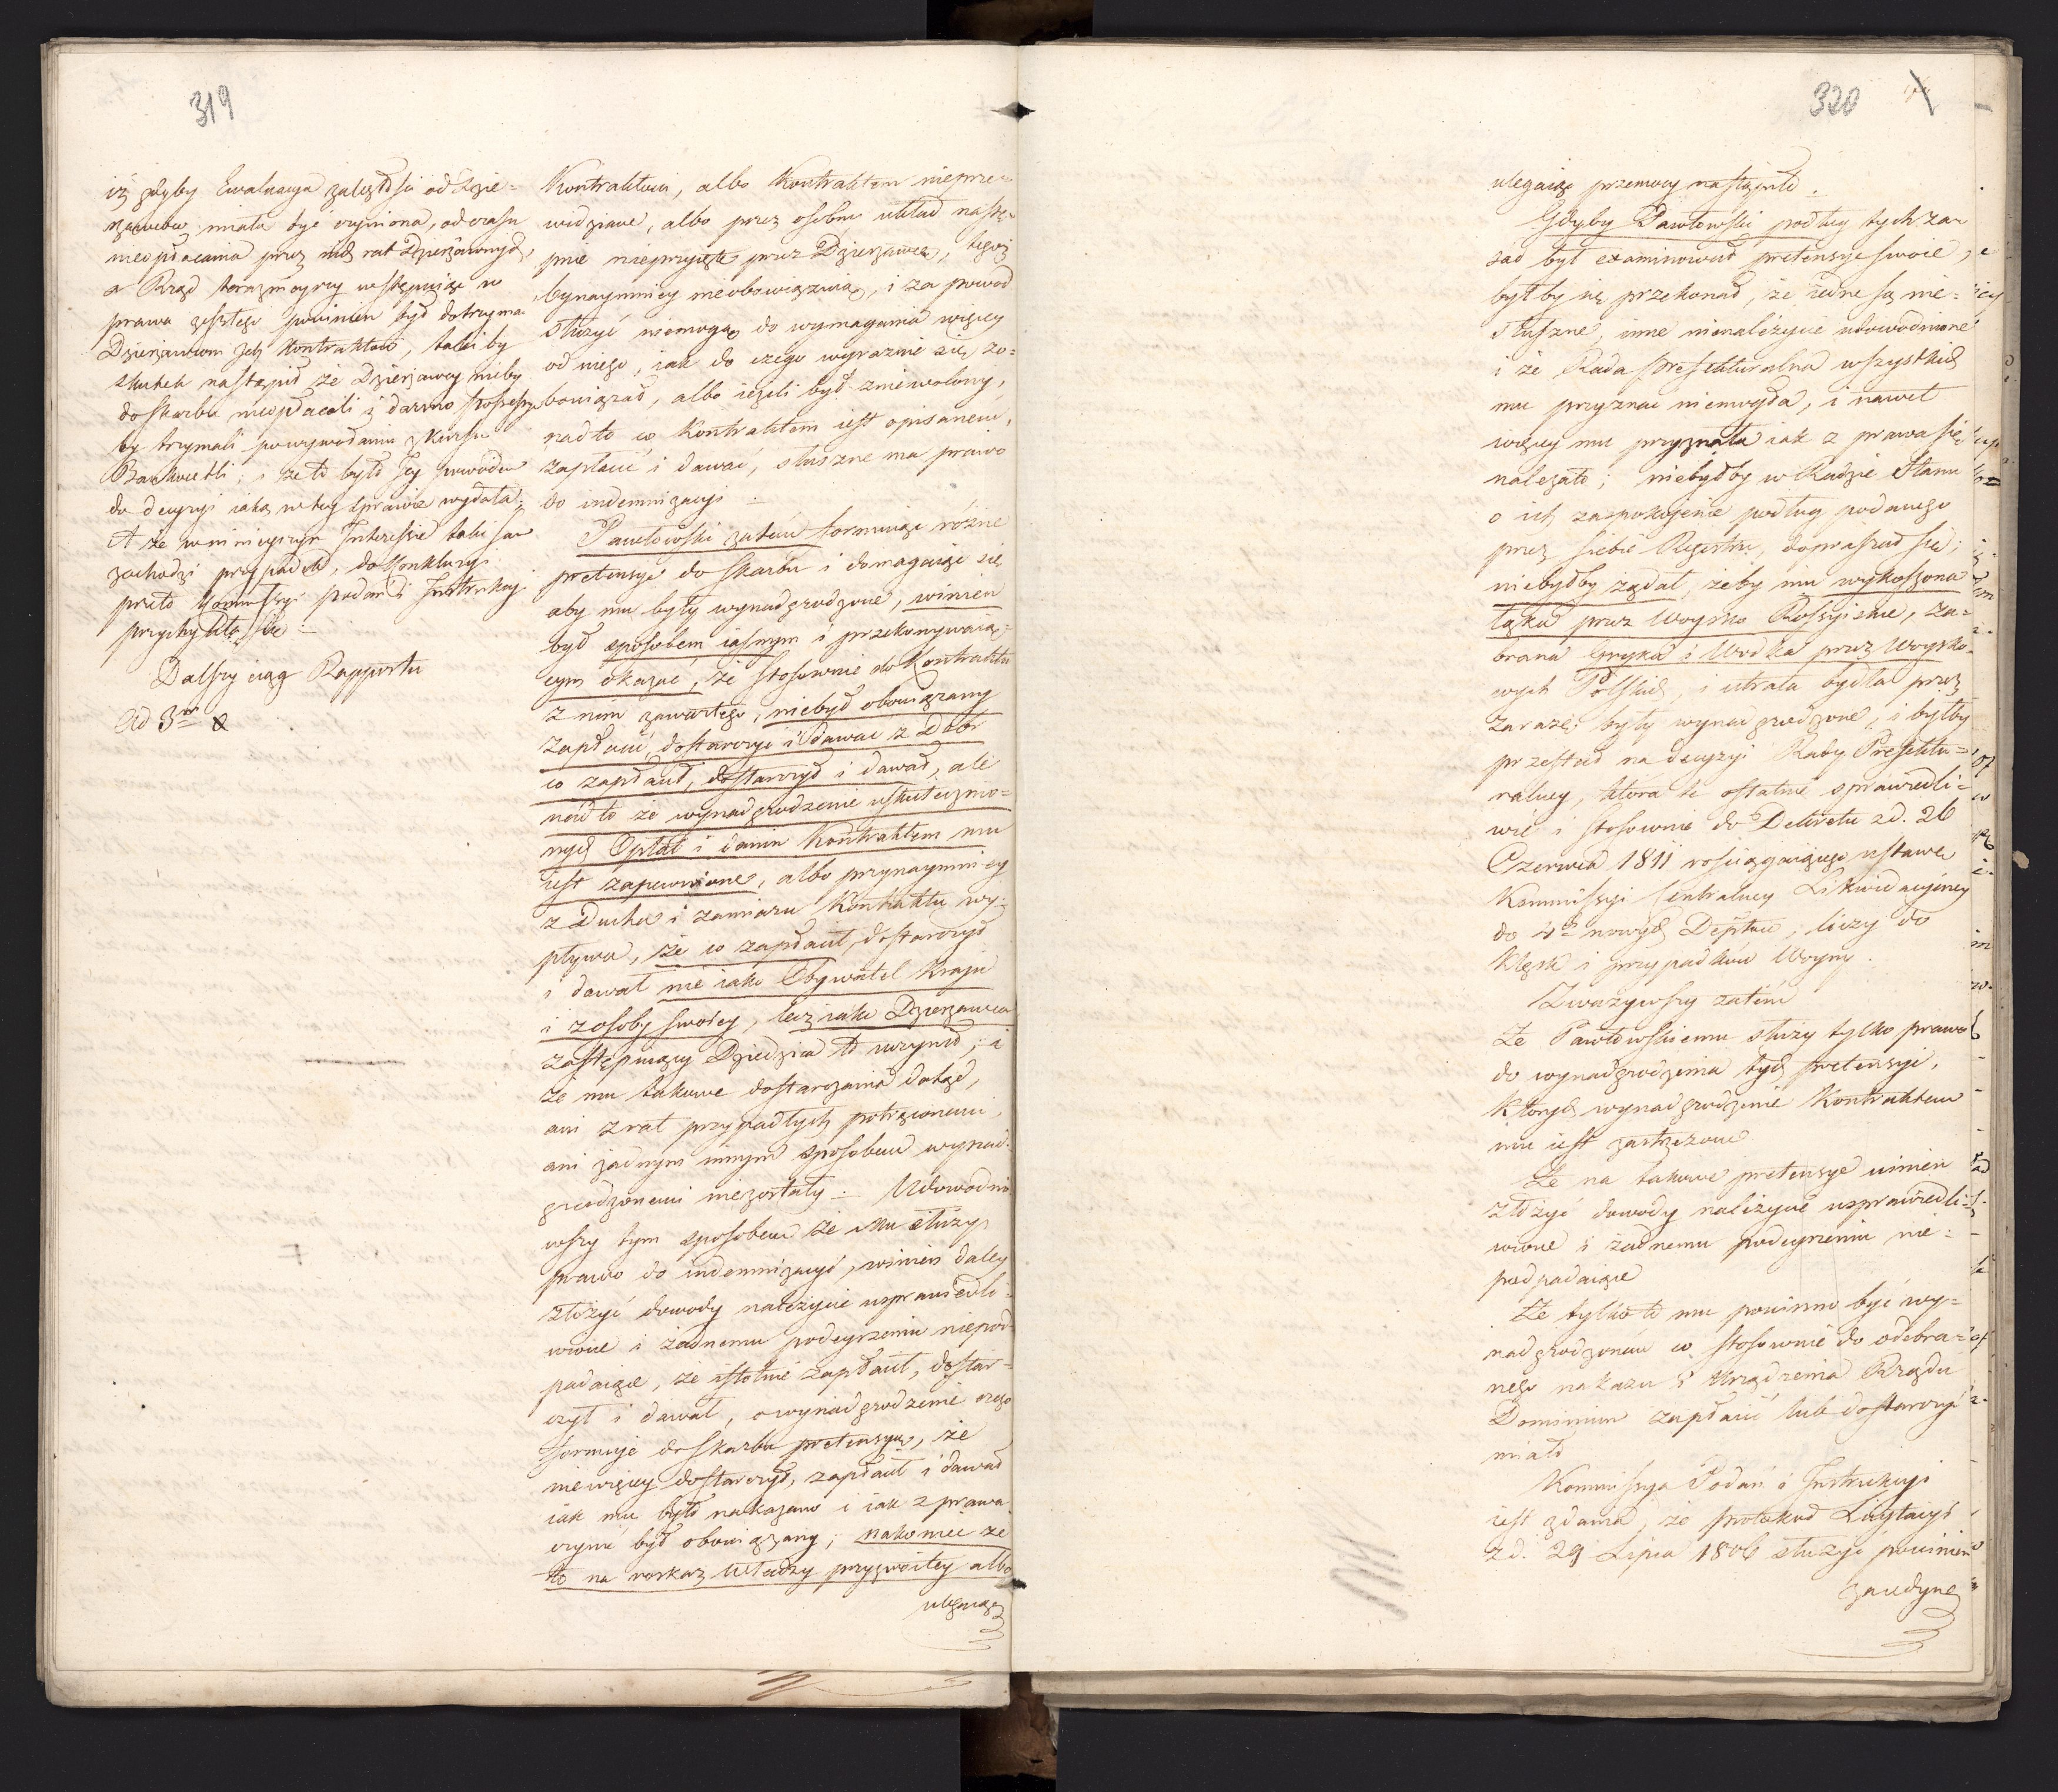 319
iż gdyby Ewaluacya zaległości od Dzie=
rzawców miała być czyniona, od czasu
nieopłacania przez nich rat Dzierżawnych,
a Rząd teraznieyszy wstępuiąc w
prawa zeszłego powinien był dotrzymać
Dzierżawcom Jch Kontraktów, taki by
skutek nastąpił że Dzierżawcy nieby
do skarbu nieopłacali i darmo
by trzymali po wywołaniu z kursu
Bankocetli; i że to było Jey powodem
do decyzyi iaką w tey sprawie wydała;
A że w ninieyszym Interessie taki sam
zachodzi przypadek, do Konkluzyi
przeto Kommissyi Podań i Instrukcyi
przychyliła się =
Dalszy ciąg Rapportu
Ad 3m
Kontraktowi, albo Kontraktem nieprze=
widziane, albo przez osobny układ nastę=
pnie nieprzyięte przez Dzierżawcę, tegoż
bynaymniey nieobowiązuią, i za powod
służyć niemogą do wymagania więcey
od niego, iak do czego wyraznie się zo=
bowiązał, albo ieżeli był zniewolony,
nad to co Kontraktem iest opisanem,
zapłacić i dawać, słuszne ma prawo
do indemnizacyi =
Pawłowski zatem formuiąc różne
pretensye do skarbu i domagaiąc się
aby mu były wynadgrodzone, winien
był sposobem iasnym i przekonywaią=
cym okazać, że stosownie do Kontraktu
z nim zawartego, niebył obowiązany
zapłacić, dostarczyć i dawać z Dóbr
co zapłacił, dostarczył i dawał, ale
nad to że wynadgrodzenie uskutecznio=
nych Opłat i danin Kontraktem mu
iest zapewnione, albo przynaymniey
z Ducha i zamiaru Kontraktu wy=
pływa, że co zapłacił, dostarczył
i dawał nie iako Obywatel Kraju
i z osoby swoiey, lecz iako Dzierżawca
zastępuiący Dziedzica to uczynił; i
że mu takowe dostarczania dotąd,
ani z rat przypadłych potrąconemi,
ani żadnym innym sposobem wynad=
grodzonemi niezostały = Udowodni=
wszy tym sposobem że mu służy
prawo do indemnizacyi, winien daley
złożyć dowody należycie usprawiedli=
wione i żadnemu podeyrzeniu niepod=
padaiące, że istotnie zapłacił, dostar=
czył i dawał, o wynadgrodzenie czego
formuie do skarbu pretensyą, że
niewięcey dostarczył, zapłacił i dawał
iak mu było nakazano i iak z prawa
czynić był obowiązany; nakoniec że
to na rozkaz Władzy przyzwoitey albo
ulegaiąc
320
ulegaiąc przemocy nastąpiło.
Gdyby Pawłowski podług tych za=
sad był examinował pretensye swoie,
byłby się przekonał, że iedne są nie=
słuszne, inne nienależycie udowodnione
i że Rada Prefekturalna wszystkich
mu przyznać niemogła, i nawet
więcey mu przyznała iak z prawa się
należało; niebyłby w Radzie Stanu
o ich zaspokojenie podług podanego
przez siebie Regestru, dopraszał się;
niebyłby żądał, żeby mu wykoszona
łąka przez Woysko Rossyiskie, za=
brana Gryka i Wodka przez Woysko=
wych Polskich i utrata bydła przez
zarazę były wynadgrodzone, i byłby
przestał na decyzyi Rady Prefektu=
ralney, która te ostatnie sprawiedli=
wie i stosownie do Dekretu z d. 26
Czerwca 1811 rościągaiącego ustawę
Kommissyi Centralney Likwidacyiney
do 4ch nowych Dep̃tów, liczy do
klęsk i przypadków Woyny.
Zważywszy zatem
Że Pawłowskiemu służy tylko prawo
do wynadgrodzenia tych pretensyi,
których wynadgrodzenie Kontraktem
mu iest zastrzeżone
Że na takowe pretensye winien
złożyć dowody należycie usprawiedli=
wione i żadnemu podeyrzeniu nie=
podpadaiące
Że tylko to mu powinno być wy=
nadgrodzonem co stosownie do odebra=
nego nakazu i Urządzenia Rządu
Dominium zapłacić lub dostarczyć
miało
Kommissya Podań i Instrukcyi
iest zdania, że protokuł Licytacyi
z d. 29 Lipca 1806 służyć powinien
za iedyną